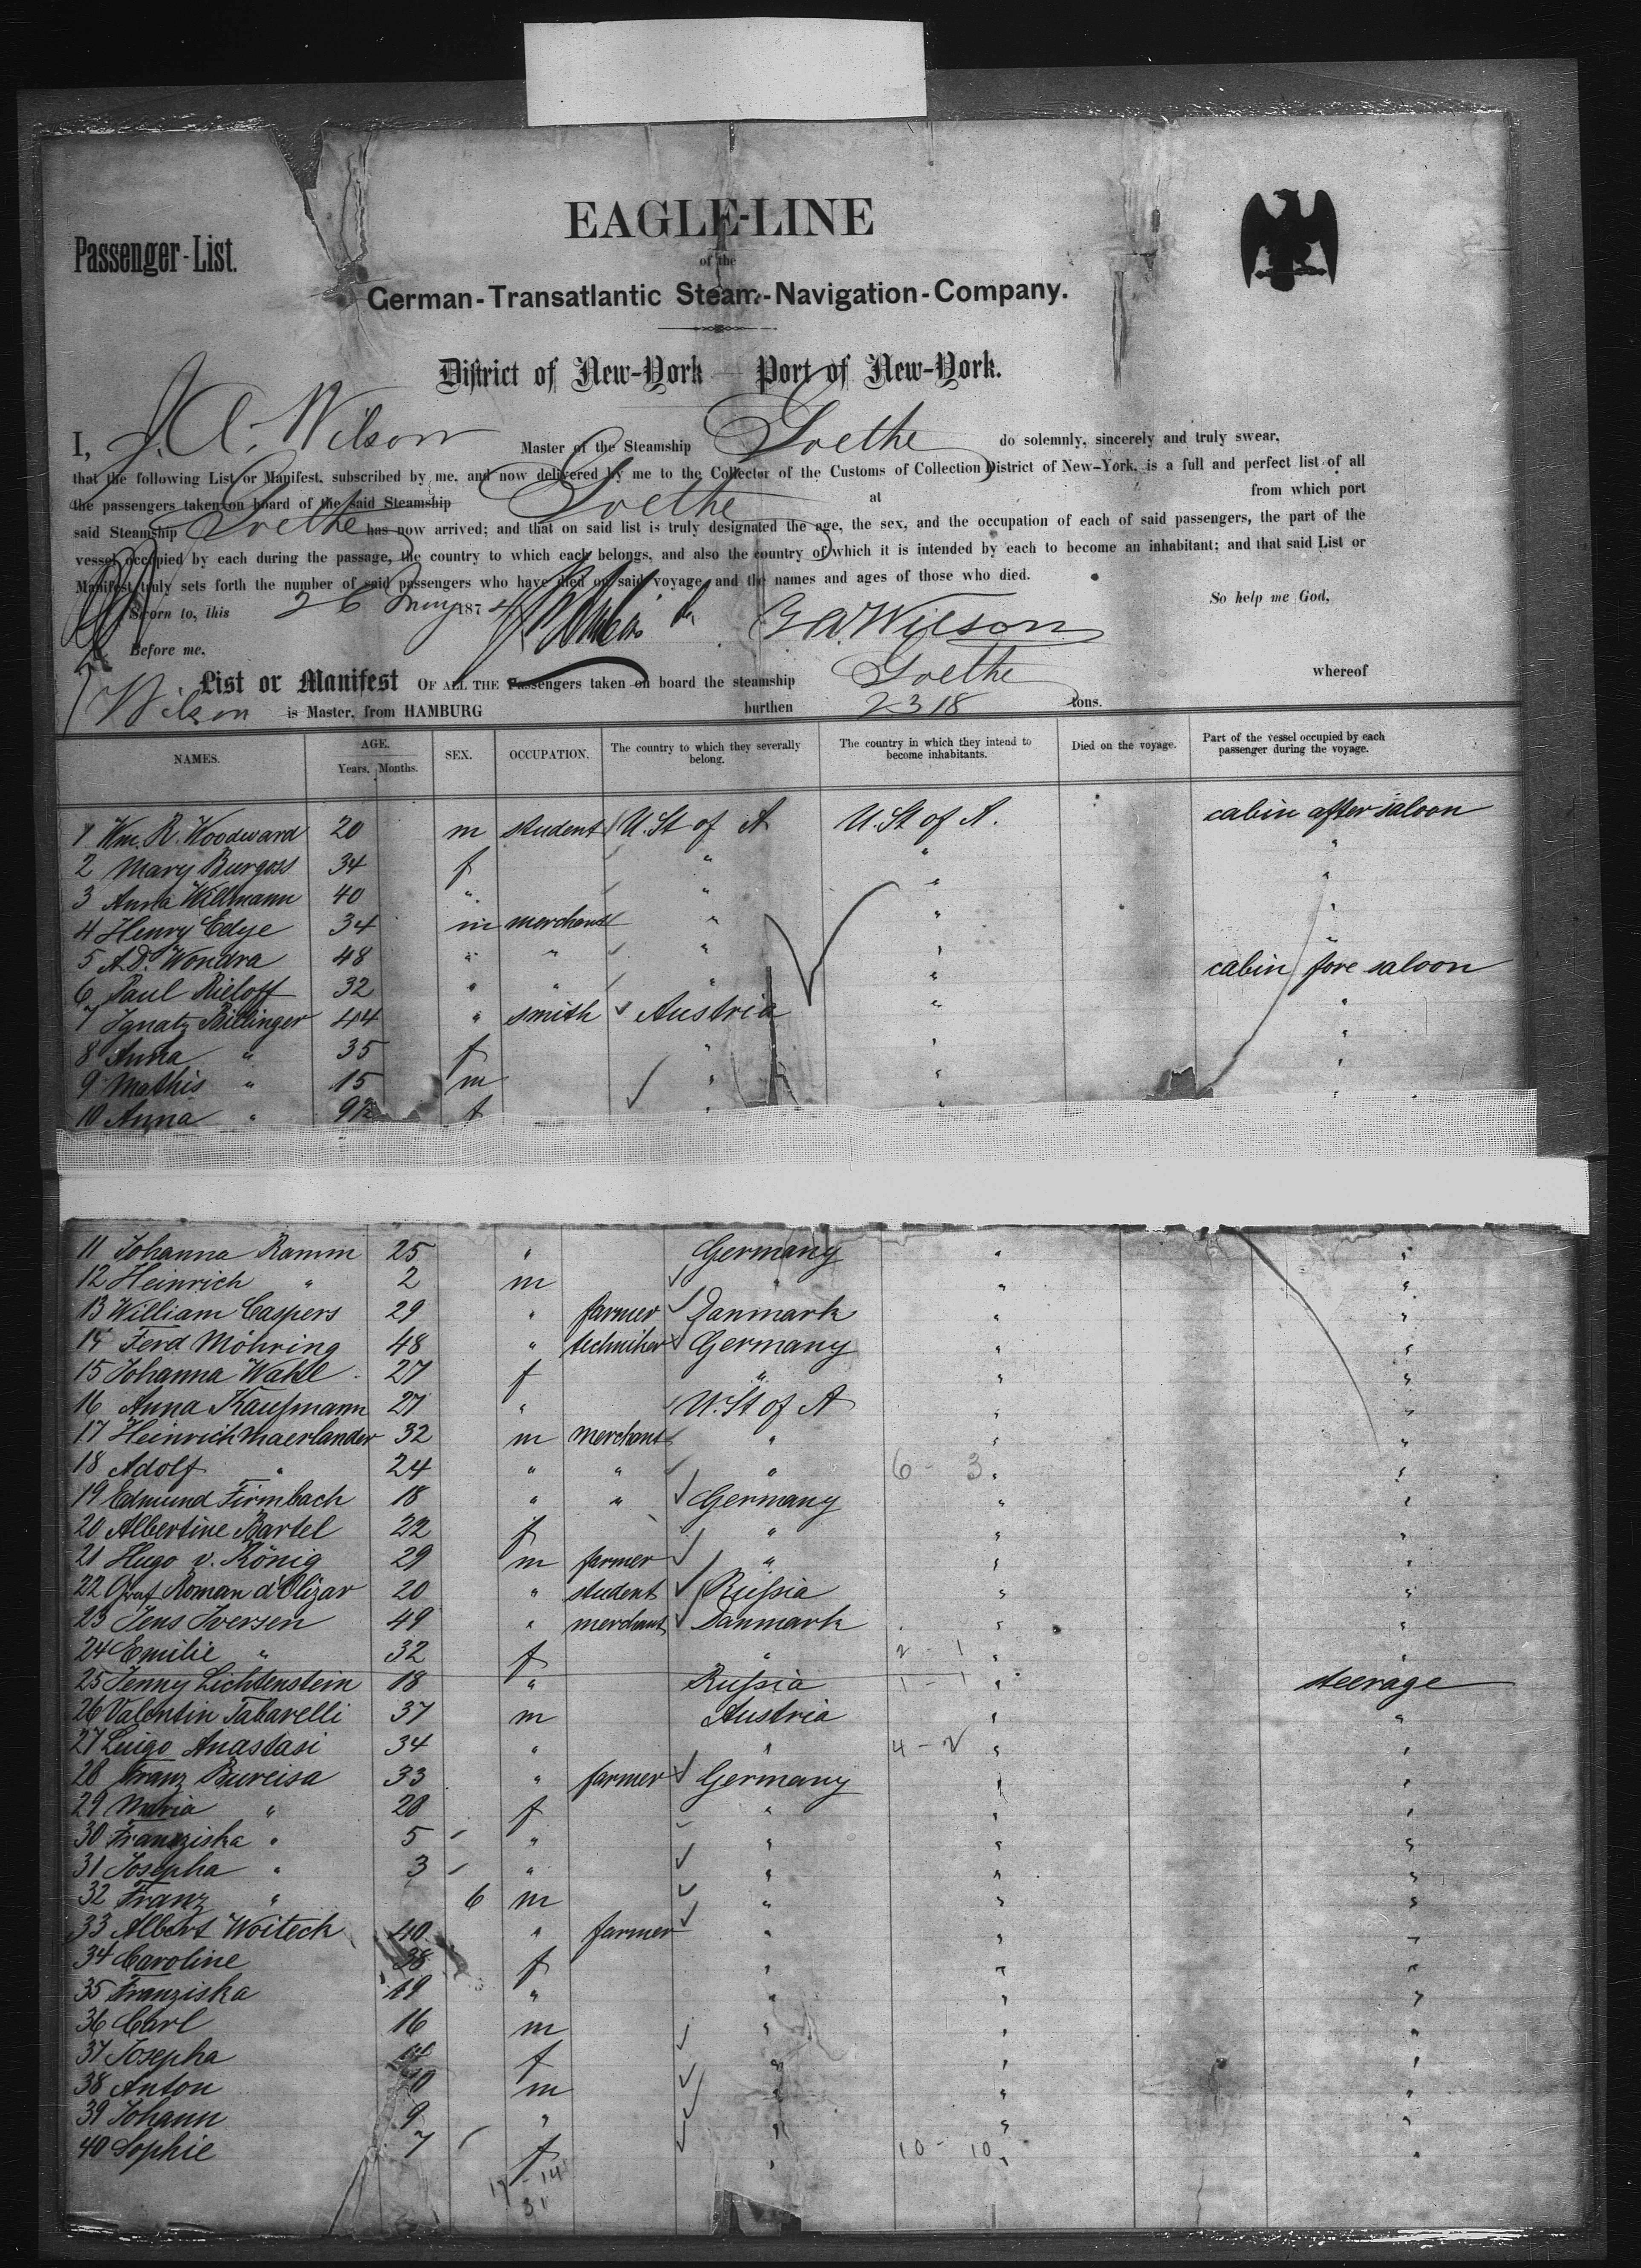 EAGLE-LINE
Passenger-List.
of the
German-Transatlantic Steam-Navigation-Company.
District of New-York — Port of New-York.
I, J. A. Wilson Master of the Steamship Goethe do solemnly, sincerely and truly swear,
that the following List or Manifest, subscribed by me, and now delivered by me to the Collector of the Customs of Collection District of New-York, is a full and perfect list of all
the passengers taken on board of the said Steamship Goethe at from which port
said Steamship Goethe has now arrived; and that on said list is truly designated the age, the sex, and the occupation of each of said passengers, the part of the
vessel occupied by each during the passage, the country to which each belongs, and also the country of which it is intended by each to become an inhabitant; and that said List or
Manifest truly sets forth the number of said passengers who have died on said voyage, and the names and ages of those who died.
Sworn to, this 26 May 1874 So help me God,
Before me. Wilson
List or Manifest OF ALL THE Passengers taken on board the steamship Goethe whereof
Wilson is Master, from HAMBURG burthen 2318 tons.
NAMES. AGE. Years. Months. SEX. OCCUPATION. The country to which they severally belong. The country in which they intend to become inhabitants. Died on the voyage. Part of the vessel occupied by each passenger during the voyage.
1 Wm. R. Woodward 20 m student U. St of A U. St of A. cabin after saloon
2 Mary Burgoss 34 f " " "
3 Anna Willmann 40 " " " "
4 Henry Edye 34 m merchant " " "
5 A.D. Wondra 48 " " " " "
6 Paul Rieloff 32 " " " " cabin fore saloon
7 Ignatz Billinger 44 " smith Austria " "
8 Anna " 35 f " " "
9 Mathis " 15 m " " "
10 Anna " 9½ f " " "
11 Johanna Ramm 25 " Germany " "
12 Heinrich " 2 m " " "
13 William Caspers 29 " farmer Danmark " "
14 Ferd Möhring 48 " techniker Germany " "
15 Johanna Wahle 27 f " " "
16 Anna Kaufmann 27 " U. St of A " "
17 Heinrich Maerlander 32 m merchant " " "
18 Adolf " 24 " " " 6 - 3 " "
19 Edmund Firmbach 18 " " Germany " "
20 Albertine Bartel 22 f " " "
21 Hugo v. König 29 m farmer " " "
22 Graf Roman d'Olizar 20 " student Russia " "
23 Jens Iversen 49 " merchant Danmark " "
24 Emilie " 32 f " 2 - 1 " "
25 Jenny Lichtenstein 18 " Russia 1 - 1 " steerage
26 Valentin Tabarelli 37 m Austria " "
27 Luigo Anastasi 34 " " 4 - 2 " "
28 Franz Bureisa 33 " farmer Germany " "
29 Maria " 28 f " " "
30 Franziska " 5 " " " "
31 Josepha " 3 " " " "
32 Franz " 6 m " " "
33 Albert Woitech 40 " farmer " " "
34 Caroline 38 f " " "
35 Franziska 19 " " " "
36 Carl 16 m " " "
37 Josepha f " " "
38 Anton 10 m " " "
39 Johann 9 " " " "
40 Sophie 7 f " 10 - 10 " "
17 - 14
31